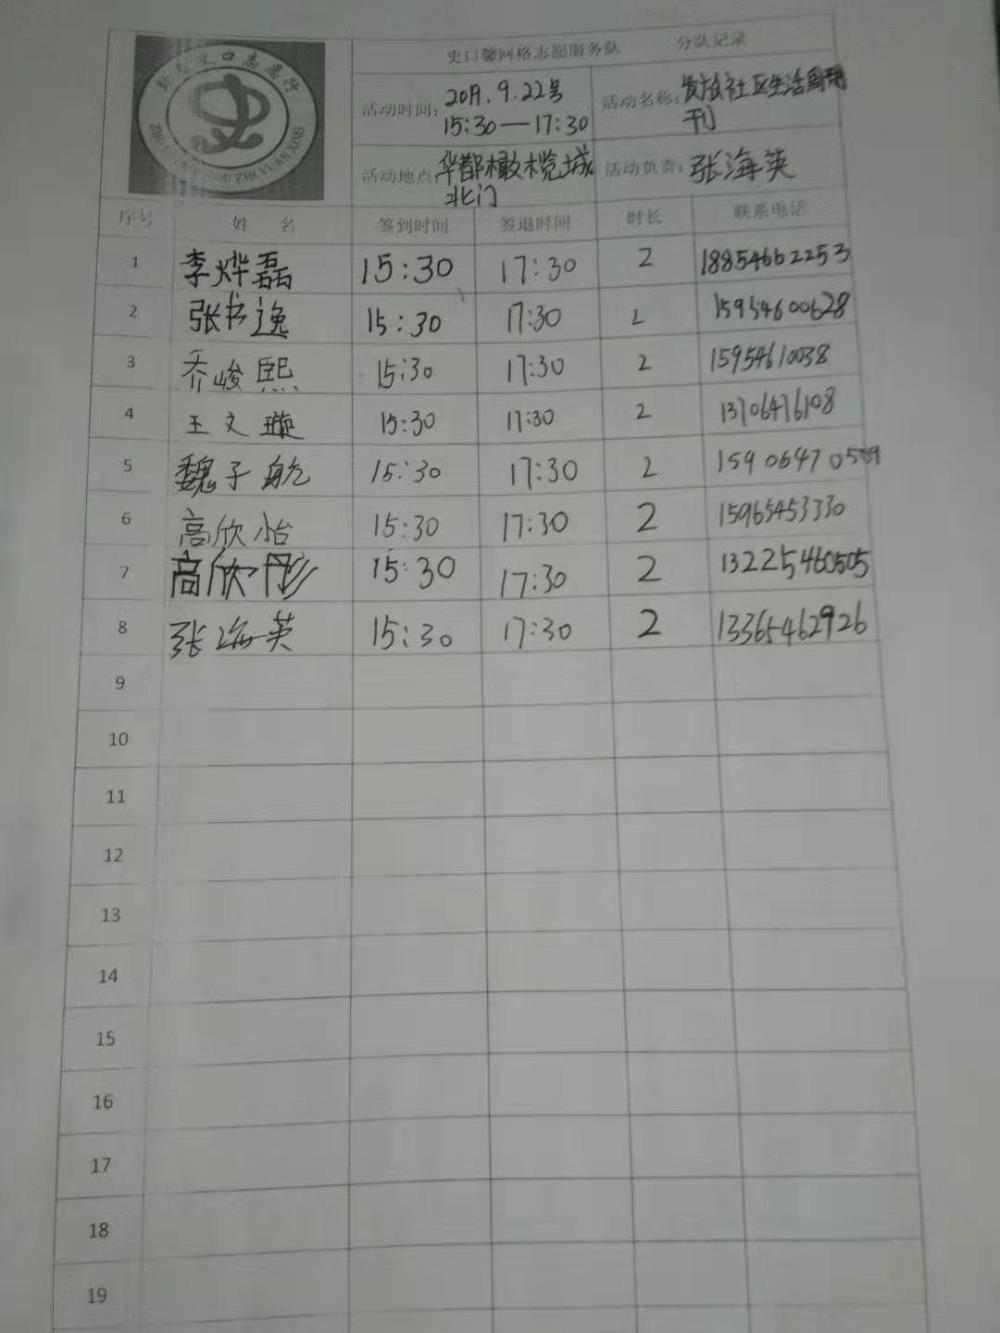 史口馨网格志愿服务队 分队记录
活动时间: 2019.9.22号
15:30—17:30
活动名称: 发放社区生活周
刊
活动地点 华都橄榄城
北门
活动负责: 张海英
序号 姓 名 签到时间 签退时间 时长 联系电话
1 李烨磊 15:30 17:30 2 18854662253
2 张书逸 15:30 17:30 2 15954600628
3 乔峻熙 15:30 17:30 2 15954610038
4 王文璇 15:30 17:30 2 13706476108
5 魏子航 15:30 17:30 2
6 高欣怡 15:30 17:30 2 15965453330
7 高欣彤 15:30 17:30 2 13225460505
8 张海英 15:30 17:30 2 13365462926
9
10
11
12
13
14
15
16
17
18
19